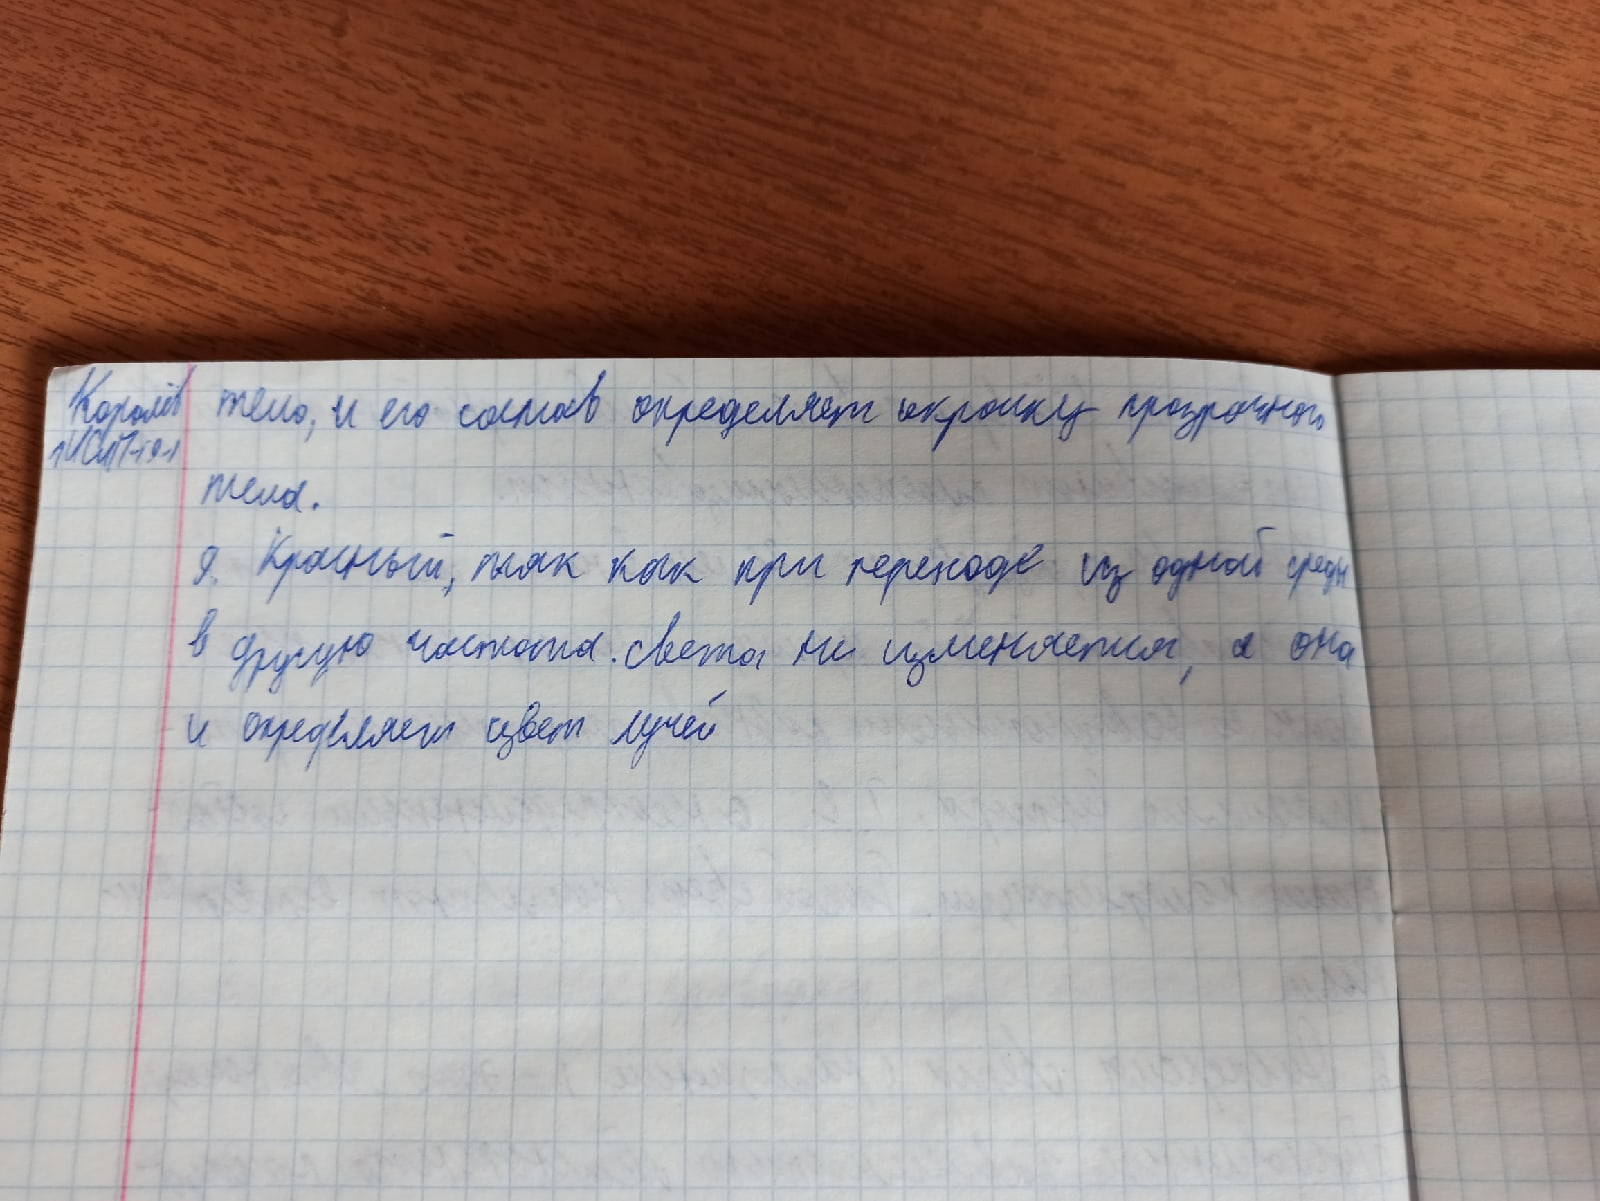 Королёв
1ИСИП-19-1
тело, и его состав определяет окраску прозрачного
тела.
9. Красный, так как при переходе из одной среды
в другую частота света не изменяется, а она
и определяет цвет лучей